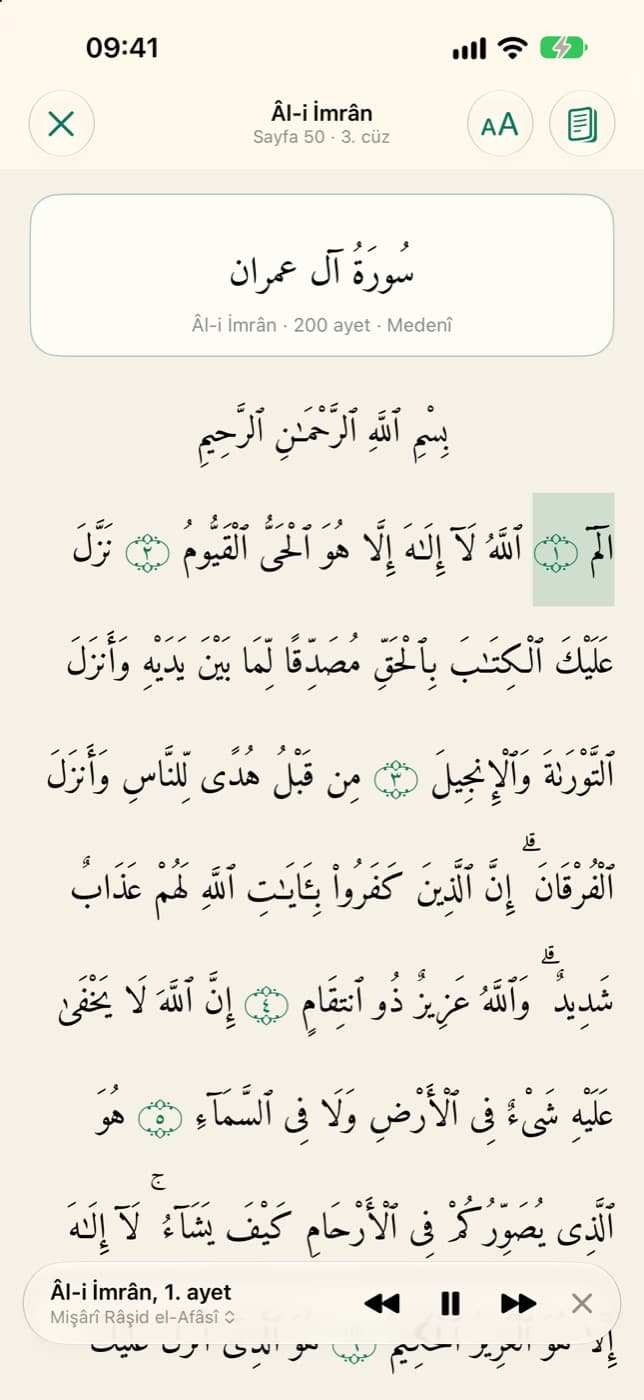 09:41
Âl-i İmrân
Sayfa 50 · 3. cüz
AA
سُورَةُ آل عمران
Âl-i İmrân · 200 ayet · Medenî
بِسْمِ ٱللَّهِ ٱلرَّحْمَـٰنِ ٱلرَّحِيمِ
الٓمٓ ١ ٱللَّهُ لَآ إِلَـٰهَ إِلَّا هُوَ ٱلْحَىُّ ٱلْقَيُّومُ ٢ نَزَّلَ
عَلَيْكَ ٱلْكِتَـٰبَ بِٱلْحَقِّ مُصَدِّقًا لِّمَا بَيْنَ يَدَيْهِ وَأَنزَلَ
ٱلتَّوْرَىٰةَ وَٱلْإِنجِيلَ ٣ مِن قَبْلُ هُدًى لِّلنَّاسِ وَأَنزَلَ
ٱلْفُرْقَانَ ۗ إِنَّ ٱلَّذِينَ كَفَرُوا۟ بِـَٔايَـٰتِ ٱللَّهِ لَهُمْ عَذَابٌ
شَدِيدٌ ۗ وَٱللَّهُ عَزِيزٌ ذُو ٱنتِقَامٍ ٤ إِنَّ ٱللَّهَ لَا يَخْفَىٰ
عَلَيْهِ شَىْءٌ فِى ٱلْأَرْضِ وَلَا فِى ٱلسَّمَآءِ ٥ هُوَ
ٱلَّذِى يُصَوِّرُكُمْ فِى ٱلْأَرْحَامِ كَيْفَ يَشَآءُ ۚ لَآ إِلَـٰهَ
Âl-i İmrân, 1. ayet
Mişârî Râşid el-Afâsî